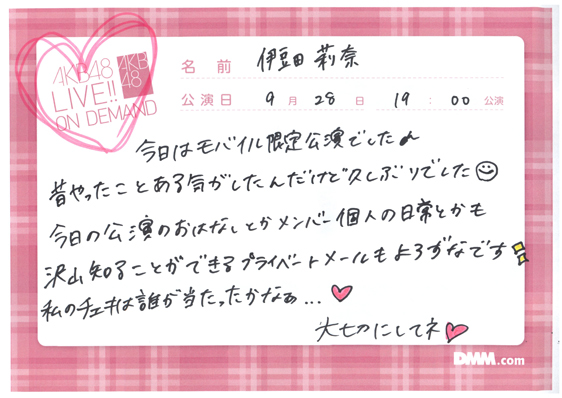 AKB48
LIVE!!
ON DEMAND
AKB
48
名前 伊豆田 莉奈
公演日 9月28日 19:00公演
今日はモバイル限定公演でした♪
昔やったことある気がしたんだけど久しぶりでした☺
今日の公演のおはなしとかメンバー個人の日常とかも
沢山知ることができるプライベートメールもよろずなです
私のチェキは誰が当たったかなぁ...♥
大切にしてネ♥
DMM.com